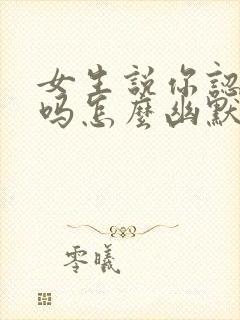 女生説你認
吗怎麼幽默
零曦